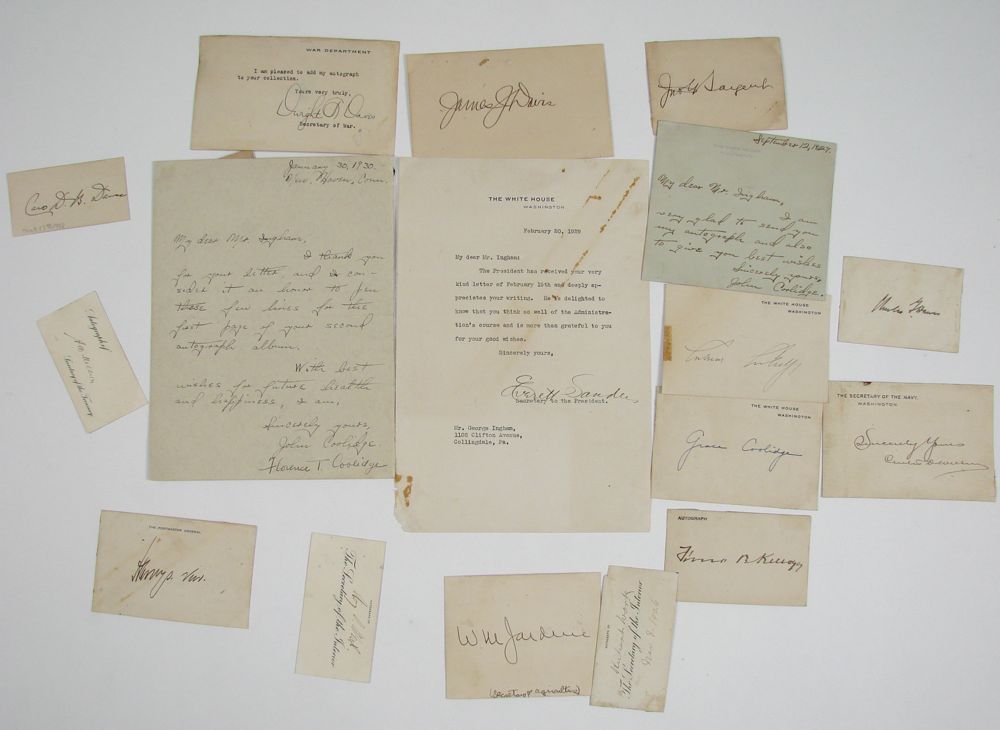 WAR DEPARTMENT
I am pleased to add my autograph
to your collection.
Yours very truly,
Dwight F. Davis
Secretary of War.
James J. Davis
Jno. G. Sargent
January 30, 1930.
New Haven, Conn.
My dear Mr. Ingham,
I thank you
for your letter, and I con-
sider it an honor to pen
these few lines for the
first page of your second
autograph album.
With best
wishes for future health
and happiness, I am,
Sincerely yours,
John Coolidge.
Florence T. Coolidge
THE WHITE HOUSE
WASHINGTON
February 20, 1929
My dear Mr. Ingham:
The President has received your very
kind letter of February 15th and deeply ap-
preciates your writing. He is delighted to
know that you think so well of the Administra-
tion's course and is more than grateful to you
for your good wishes.
Sincerely yours,
Everett Sanders
Secretary to the President.
Mr. George Ingham,
1108 Clifton Avenue,
Collingdale, Pa.
THE WHITE HOUSE
WASHINGTON
September 12, 1927.
My dear Mr. Ingham,
I am
very glad to send you
my autograph and also
to give you best wishes
Sincerely yours,
John Coolidge.
THE WHITE HOUSE
WASHINGTON
Calvin Coolidge
THE WHITE HOUSE
WASHINGTON
Grace Coolidge
THE SECRETARY OF THE NAVY.
WASHINGTON
Sincerely Yours
Curtis D. Wilbur
Autograph of
Secretary of the Treasury
THE POSTMASTER GENERAL
Harry S. New.
AUTOGRAPH OF
The Secretary of the Interior
W. M. Jardine
(Secretary of Agriculture)
AUTOGRAPH OF
Hubert Work
The Secretary of the Interior
AUTOGRAPH
Frank B. Kellogg